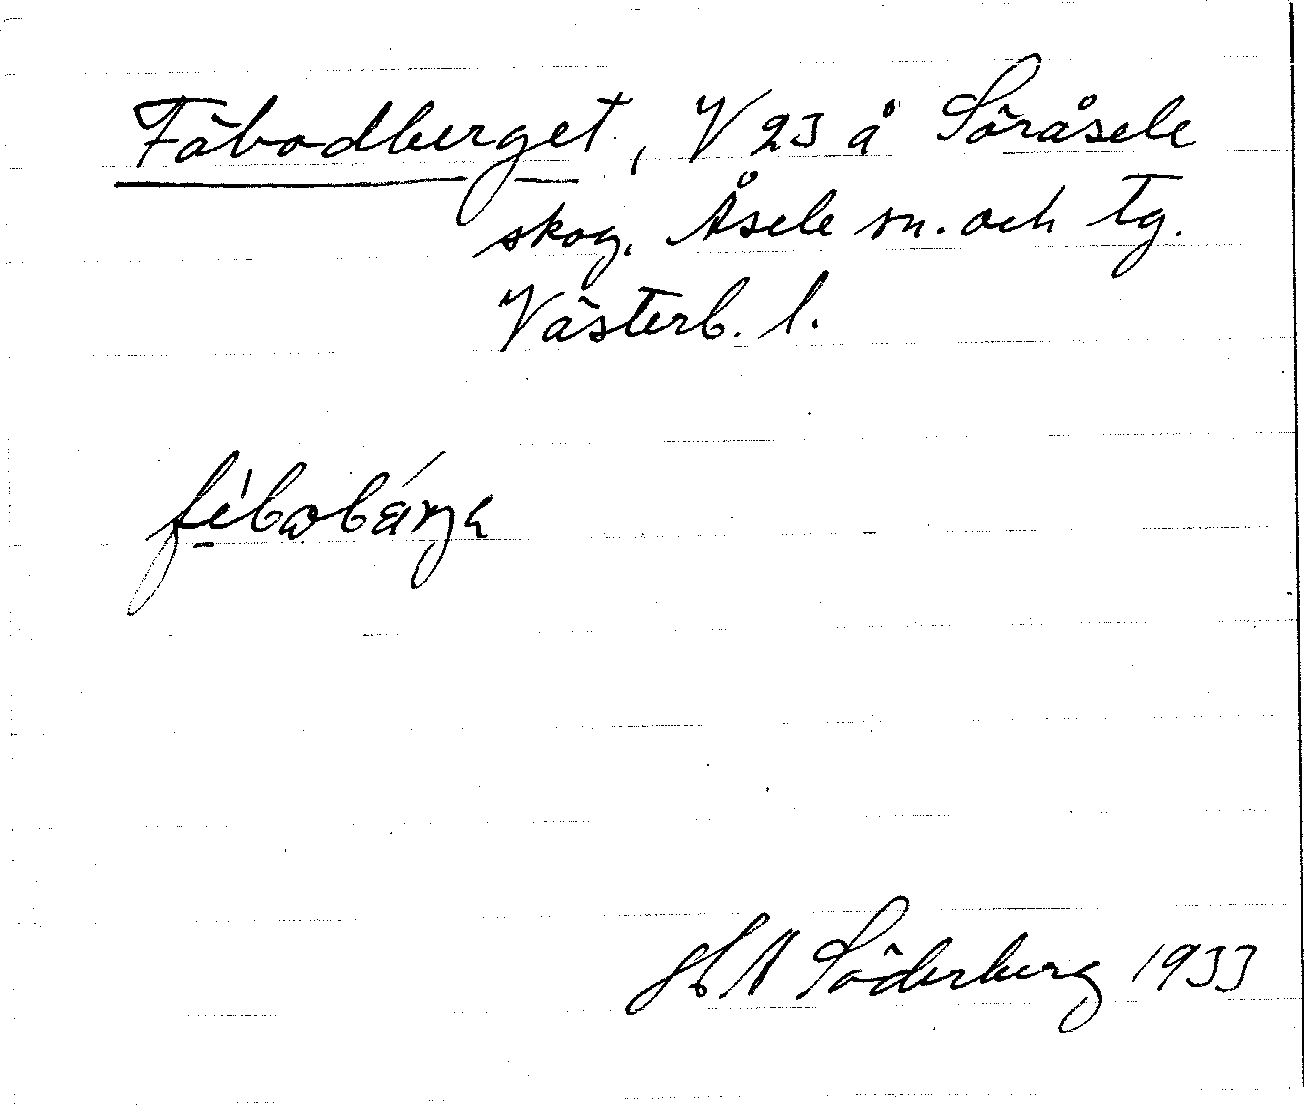 Fäbodberget, V 23 å Söråsele
skog, Åsele sn. och tg.
Västerb. l.
H A Söderberg 1933